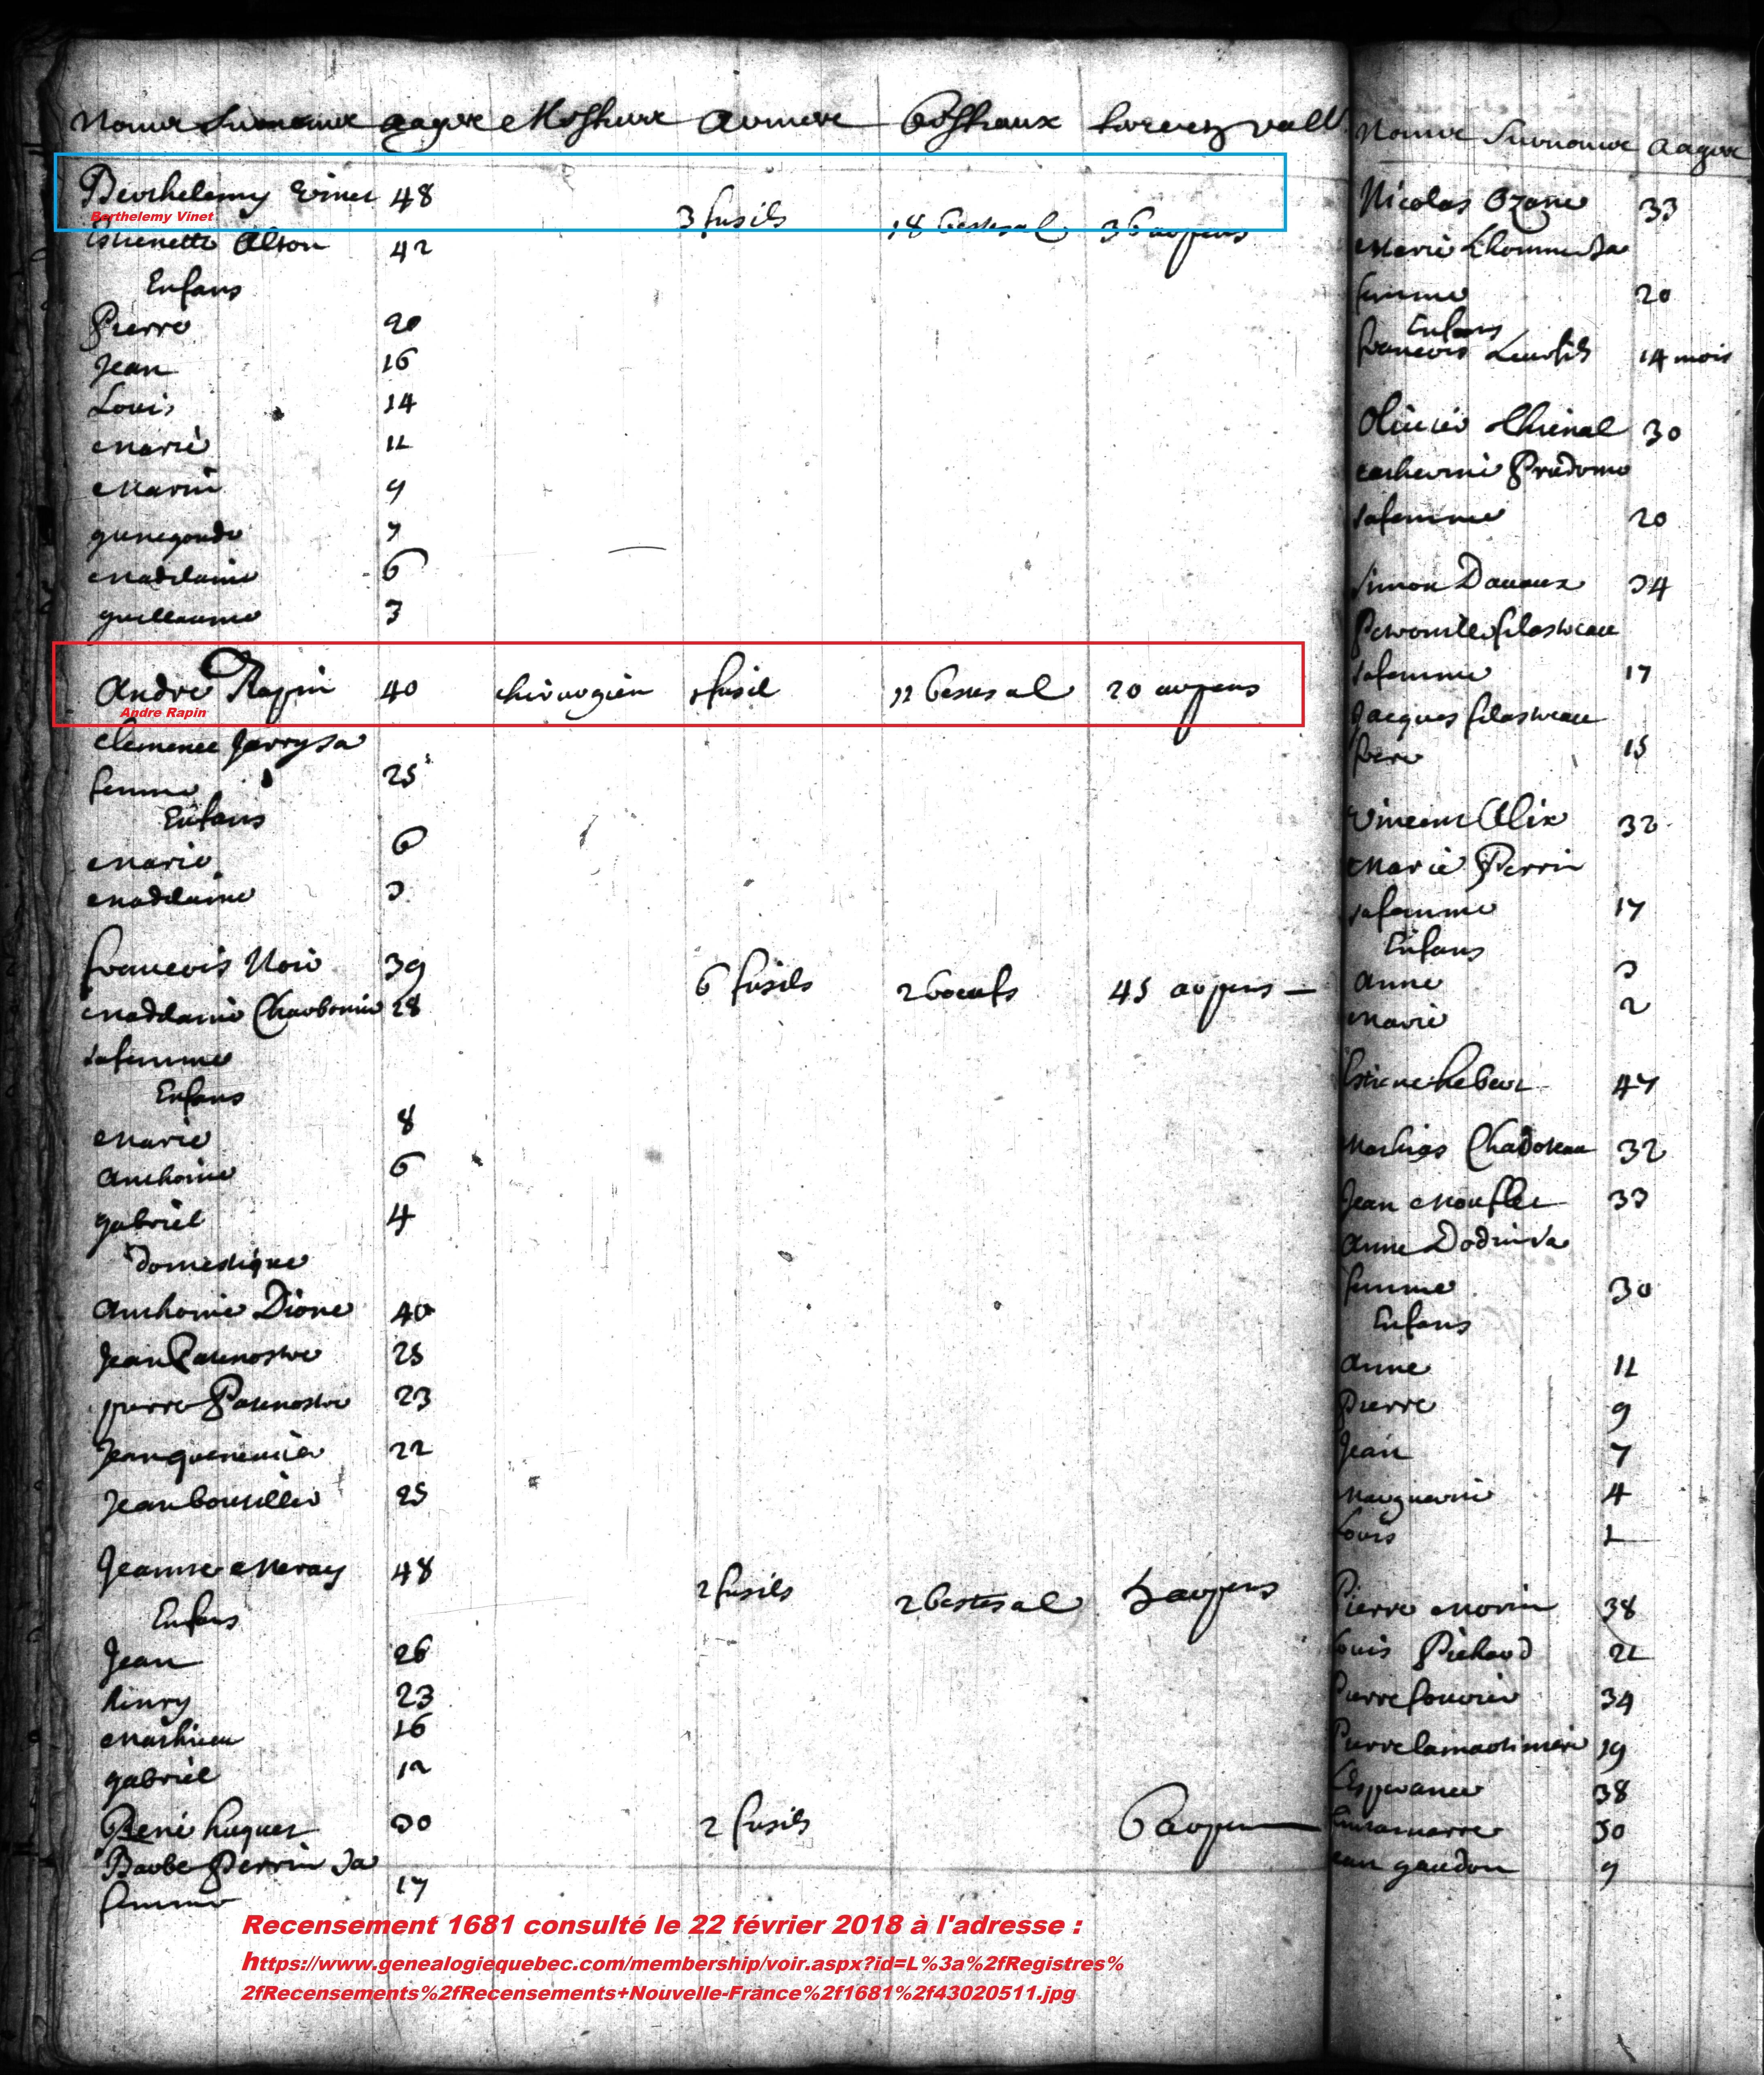 Noms Surnoms aages Mestiers armes Bestiaux terres en vall.
Berthelemy Vinet 48 3 fusils 18 bestes al 36 arpens
Berthelemy Vinet
Estienette Alton 42
Enfans
Pierre 20
Jean 16
Louis 14
Marie 11
Marin 9
gunegonde 7
Madelaine 6
guillaume 3
André Rapin 40 chirurgien 1 fusil 12 bestes al 20 arpens
Andre Rapin
Clemence Jarry sa
femme 25
Enfans
Marie 6
Madelaine 3
francois Noir 39 6 fusils 2 boeufs 45 arpens
Madelaine Charbonnier 28
sa femme
Enfans
Marie 8
Anthoine 6
gabriel 4
Domestique
Anthoine Dione 40
Jean Patenostre 25
pierre Patenostre 23
Jean 22
Jean bouteiller 25
Jeanne Meray 48 2 fusils 2 bestes al 5 arpens
Enfans
Jean 26
henry 23
Mathieu 16
gabriel 12
René huguet 30 2 fusils 6 arpens
Barbe Perrin sa
femme 17
Recensement 1681 consulté le 22 février 2018 à l'adresse :
https://www.genealogiequebec.com/membership/voir.aspx?id=L%3a%2fRegistres%
2fRecensements%2fRecensements+Nouvelle-France%2f1681%2f43020511.jpg
Noms Surnoms aages
Nicolas Ozane 33
Marie Lhomme sa
femme 20
Enfans
francois 14 mois
Olivier 30
Catherine Prudome
sa femme 20
Simon Davaux 34
Peronelle filastreau
sa femme 17
Jacques filastreau
frere 15
Vincent Alix 32
Marie Perrin
sa femme 17
Enfans
Anne 3
Marie 2
Estiene heber 47
Mathias Chadoteau 32
Jean Mouflet 33
Anne Dodin sa
femme 30
Enfans
Anne 11
Pierre 9
Jean 7
Marguerite 4
Louis 1
Pierre Morin 38
Louis Pichard 21
Pierre fournier 34
Pierre lamartiniere 19
Lesperance 38
30
Jean gaudon 9